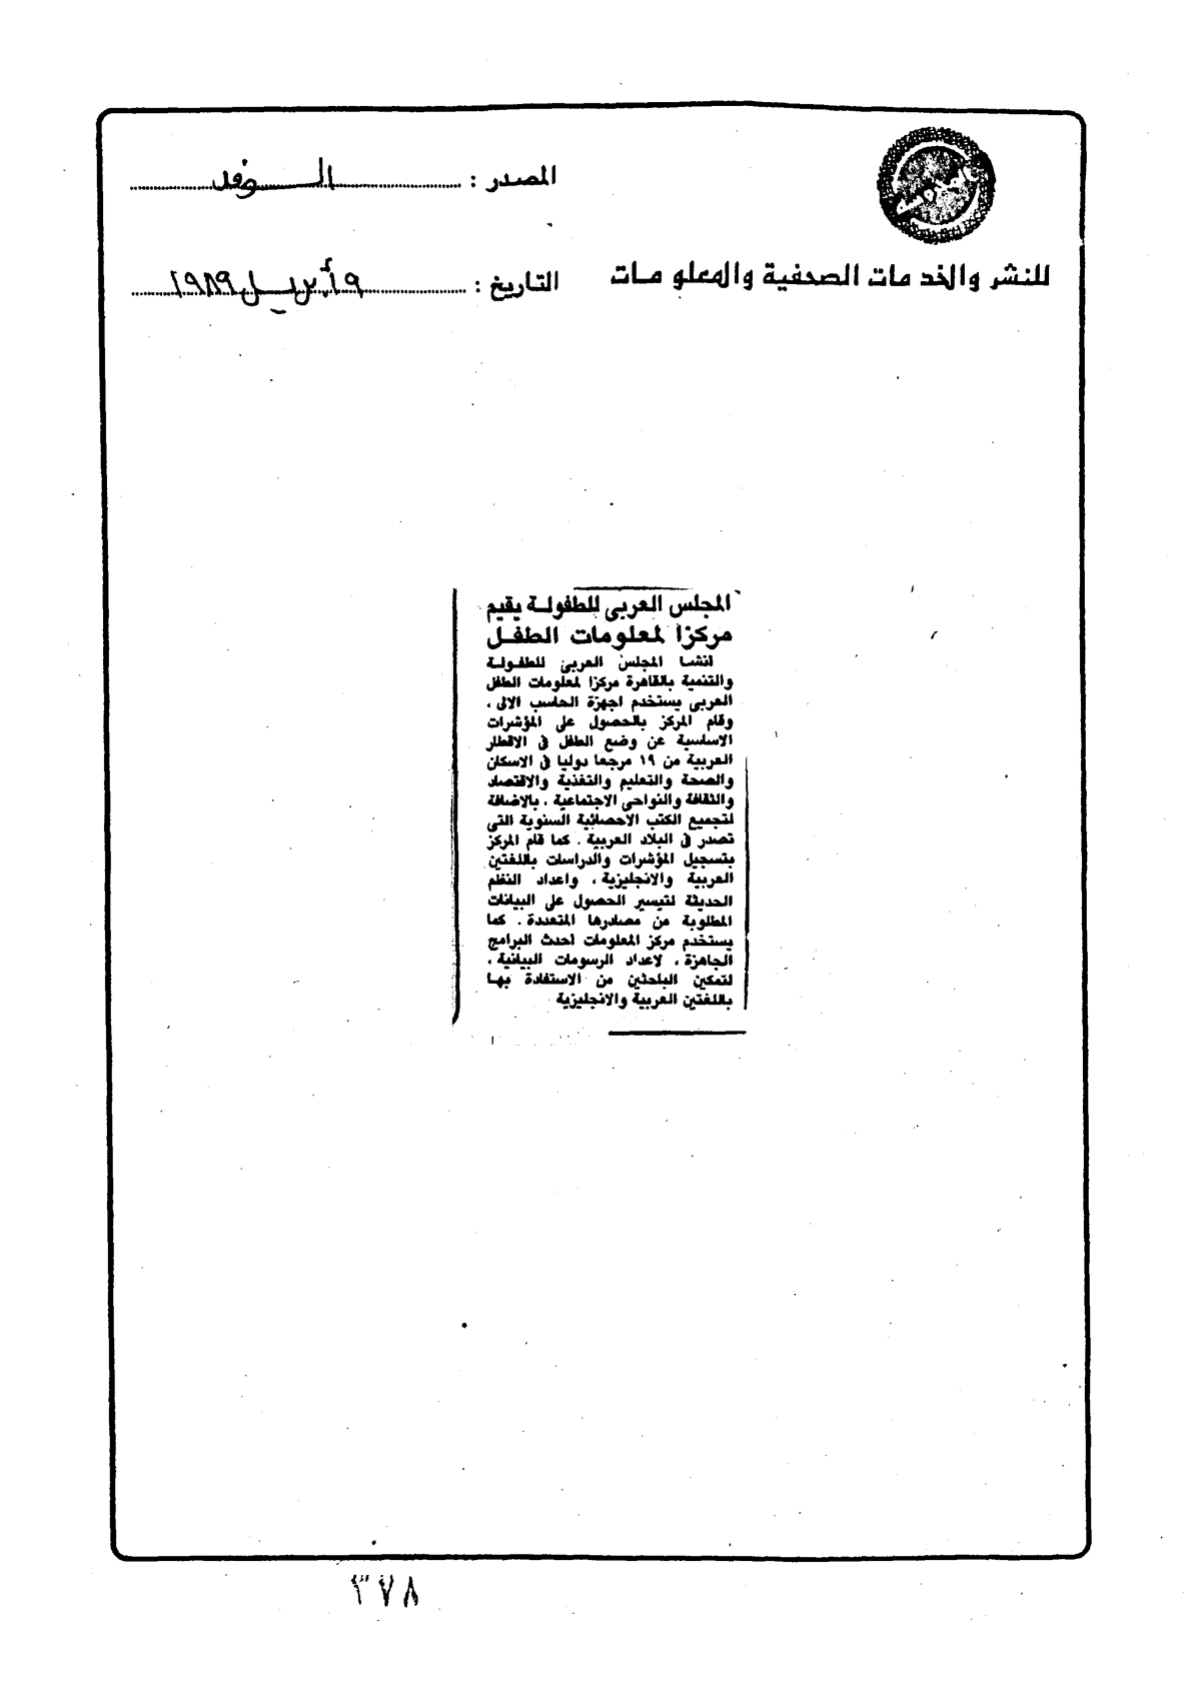 المصدر : الوفد
للنشر والخدمات الصحفية والمعلومات
التاريخ : ١٩ أبريل ١٩٨٩
المجلس العربى للطفولة يقيم
مركزا لمعلومات الطفل
انشا المجلس العربى للطفولة
والتنمية بالقاهرة مركزا لمعلومات الطفل
العربى يستخدم اجهزة الحاسب الالى .
وقام المركز بالحصول على المؤشرات
الاساسية عن وضع الطفل فى الاقطار
العربية من ١٩ مرجعا دوليا فى الاسكان
والصحة والتعليم والتغذية والاقتصاد
والثقافة والنواحى الاجتماعية . بالاضافة
لتجميع الكتب الاحصائية السنوية التى
تصدر فى البلاد العربية . كما قام المركز
بتسجيل المؤشرات والدراسات باللغتين
العربية والانجليزية ، واعداد النظم
الحديثة لتيسير الحصول على البيانات
المطلوبة من مصادرها المتعددة . كما
يستخدم مركز المعلومات احدث البرامج
الجاهزة ، لاعداد الرسومات البيانية ،
لتمكين الباحثين من الاستفادة بها
باللغتين العربية والانجليزية
٣٧٨